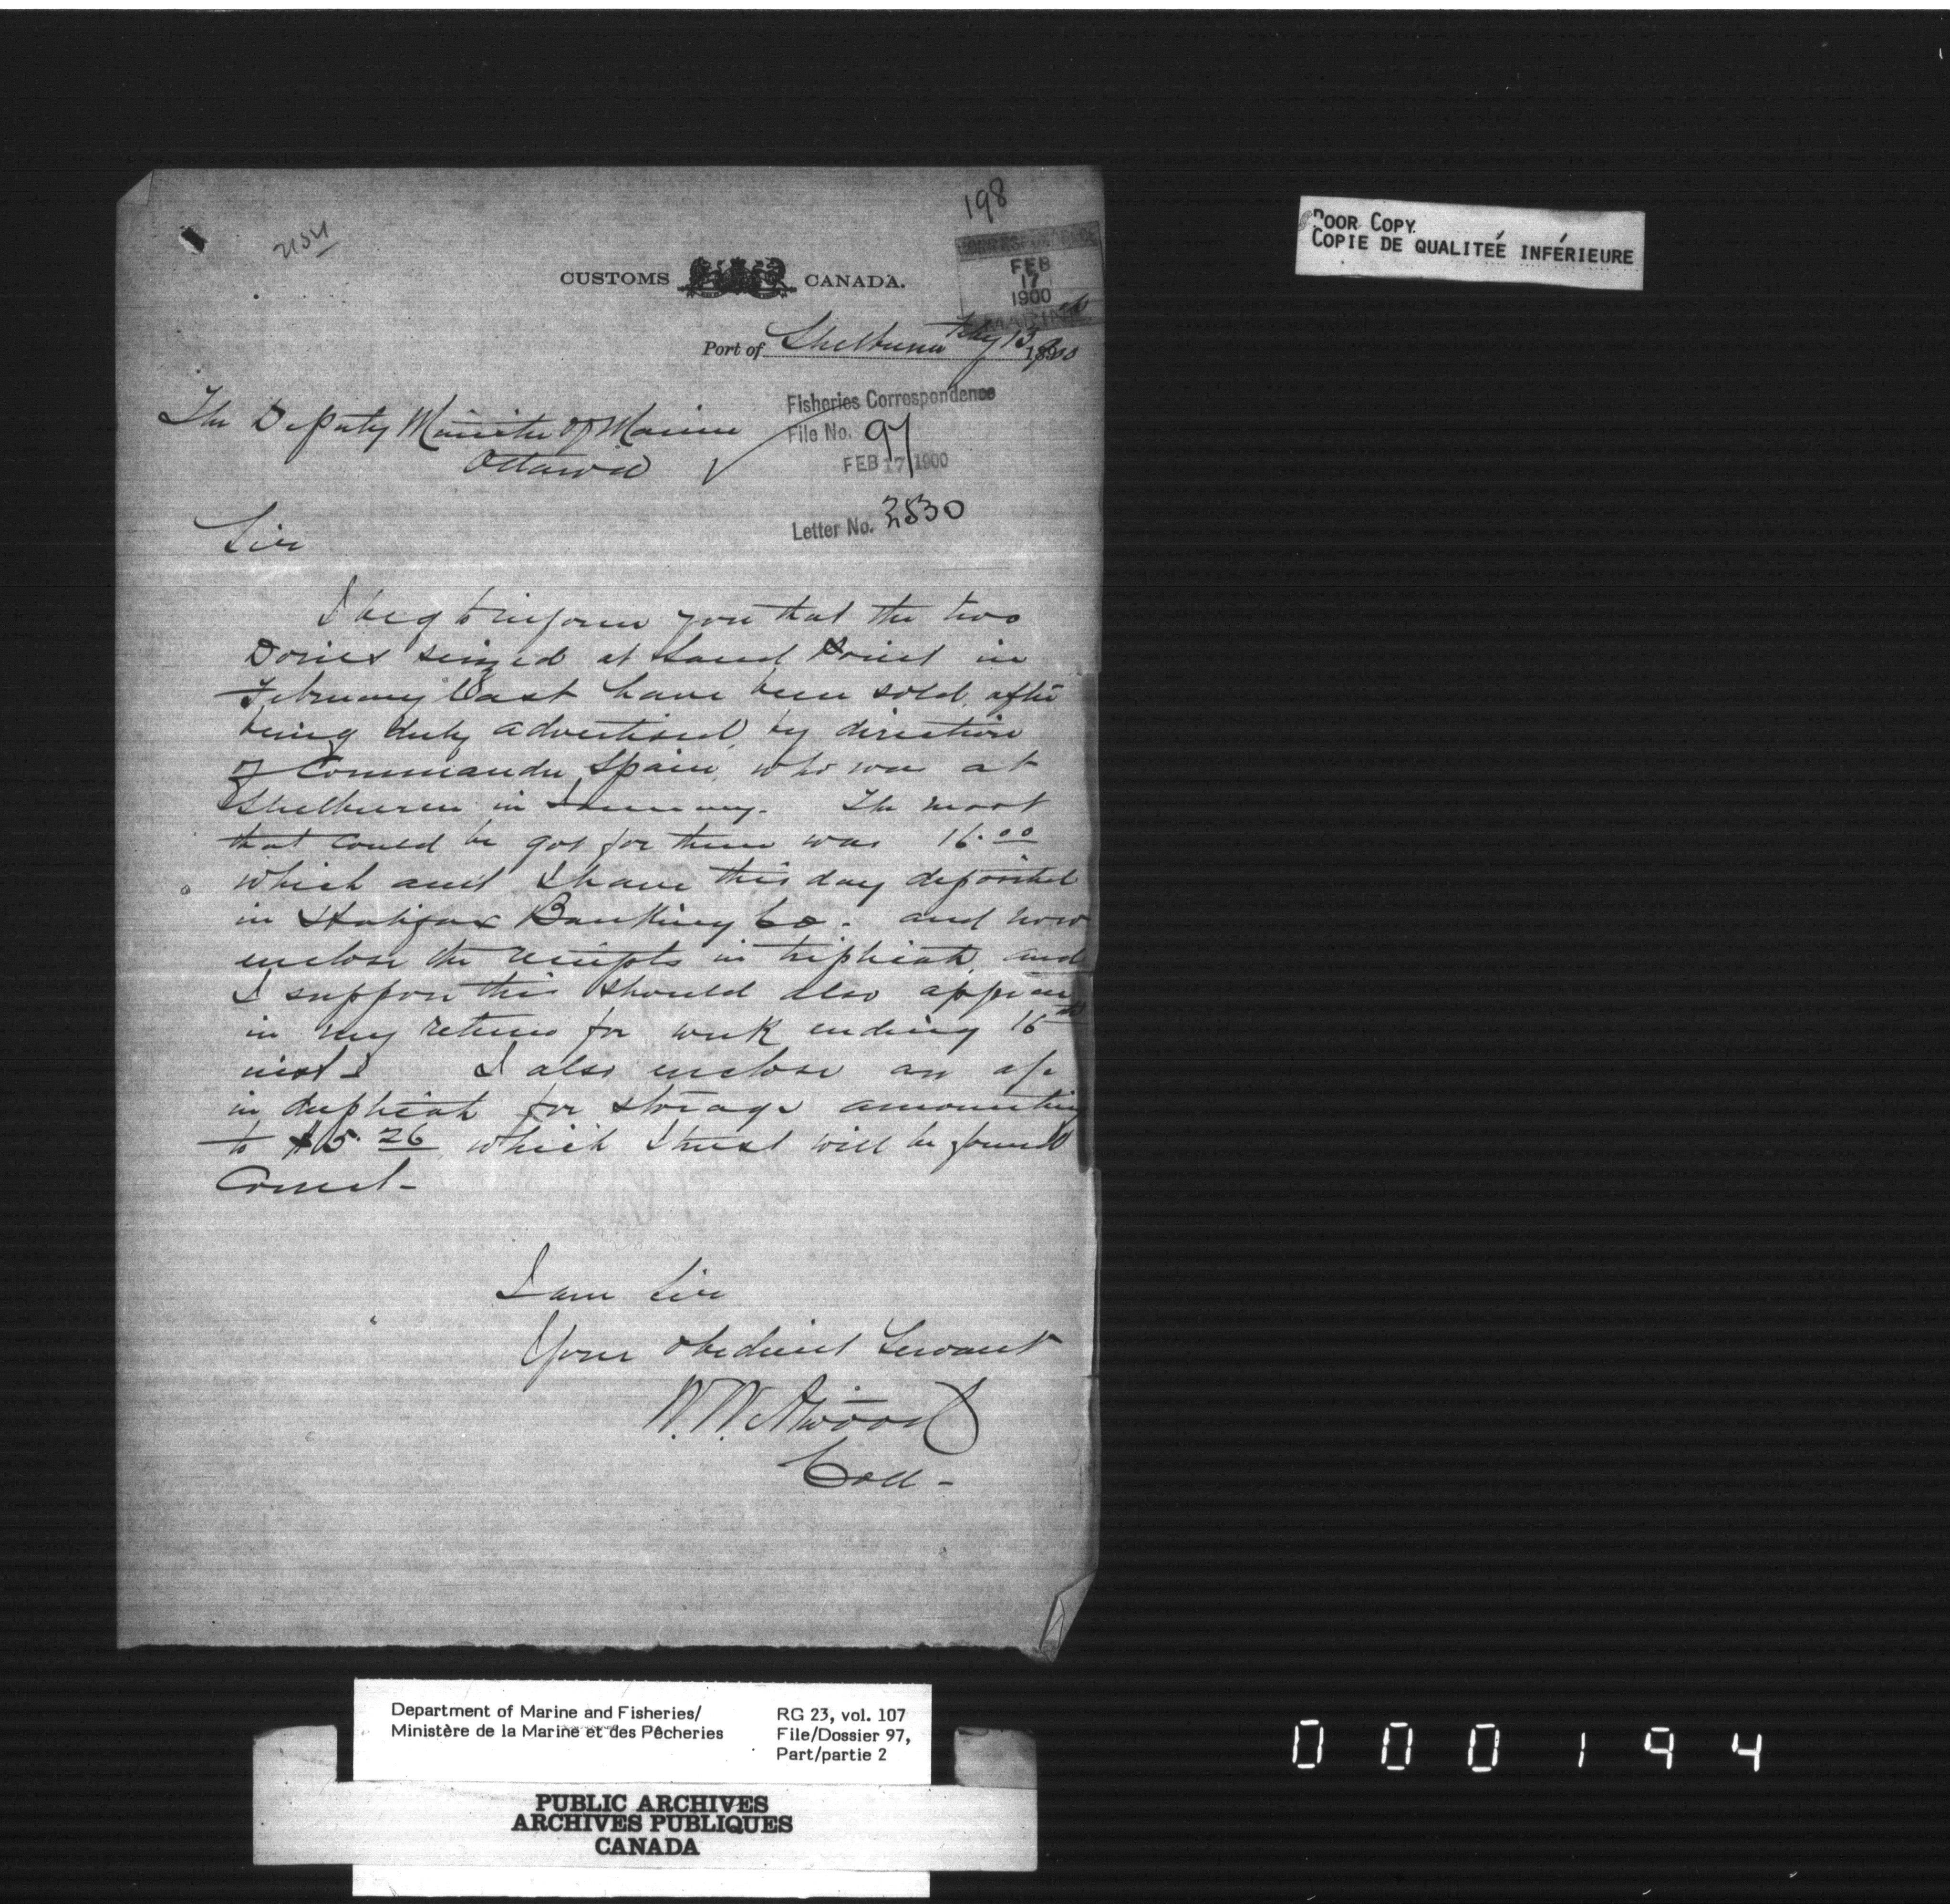 198
2154
CUSTOMS CANADA.
CORRESPONDENCE
FEB
17
1900
MARINE
Port of Shelburne Feby 13th 1900
The Deputy Minister of Marine
Ottawa
Fisheries Correspondence
File No. 97
FEB 17 1900
Letter No. 2530
Sir
I beg to inform you that the two
Dories seized at Sand Point in
February last have been sold, after
being duly advertised, by direction
of Commander Spain, who was at
Shelburne in January. The most
that could be got for them was 16.00
which amt I have this day deposited
in Halifax Banking Co. and now
enclose the receipts in triplicate, and
I suppose this should also appear
in my returns for week ending 15th
inst I also enclose an a/c
in duplicate for storage amounting
to $5.26, which I trust will be found
Correct-
I am Sir
Your obedient Servant
W. W. Atwood
Coll-
POOR COPY.
COPIE DE QUALITEÉ INFÉRIEURE
Department of Marine and Fisheries/
Ministère de la Marine et des Pêcheries
RG 23, vol. 107
File/Dossier 97,
Part/partie 2
PUBLIC ARCHIVES
ARCHIVES PUBLIQUES
CANADA
000194